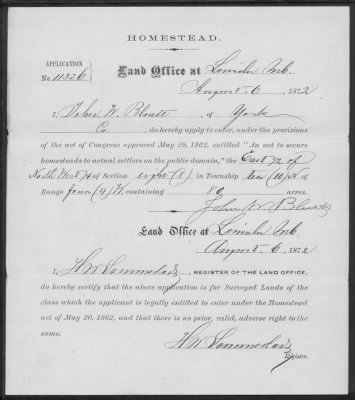 HOMESTEAD.
APPLICATION
No. 11326
Land Office at Lincoln Neb.
August 6, 1872
I, John W. of York
Co., do hereby apply to enter, under the provisions
of the act of Congress approved May 20, 1862, entitled "An act to secure
homesteads to actual settlers on the public domain," the East 1/2 of
North West 1/4 of Section eight (8) in Township ten (10) N of
Range four (4) W, containing 80 acres.
John W.
Land Office at Lincoln Neb.
August 6, 1872
I, H W, REGISTER OF THE LAND OFFICE,
do hereby certify that the above application is for Surveyed Lands of the
class which the applicant is legally entitled to enter under the Homestead
act of May 20, 1862, and that there is no prior, valid, adverse right to the
same.
H W
Register.